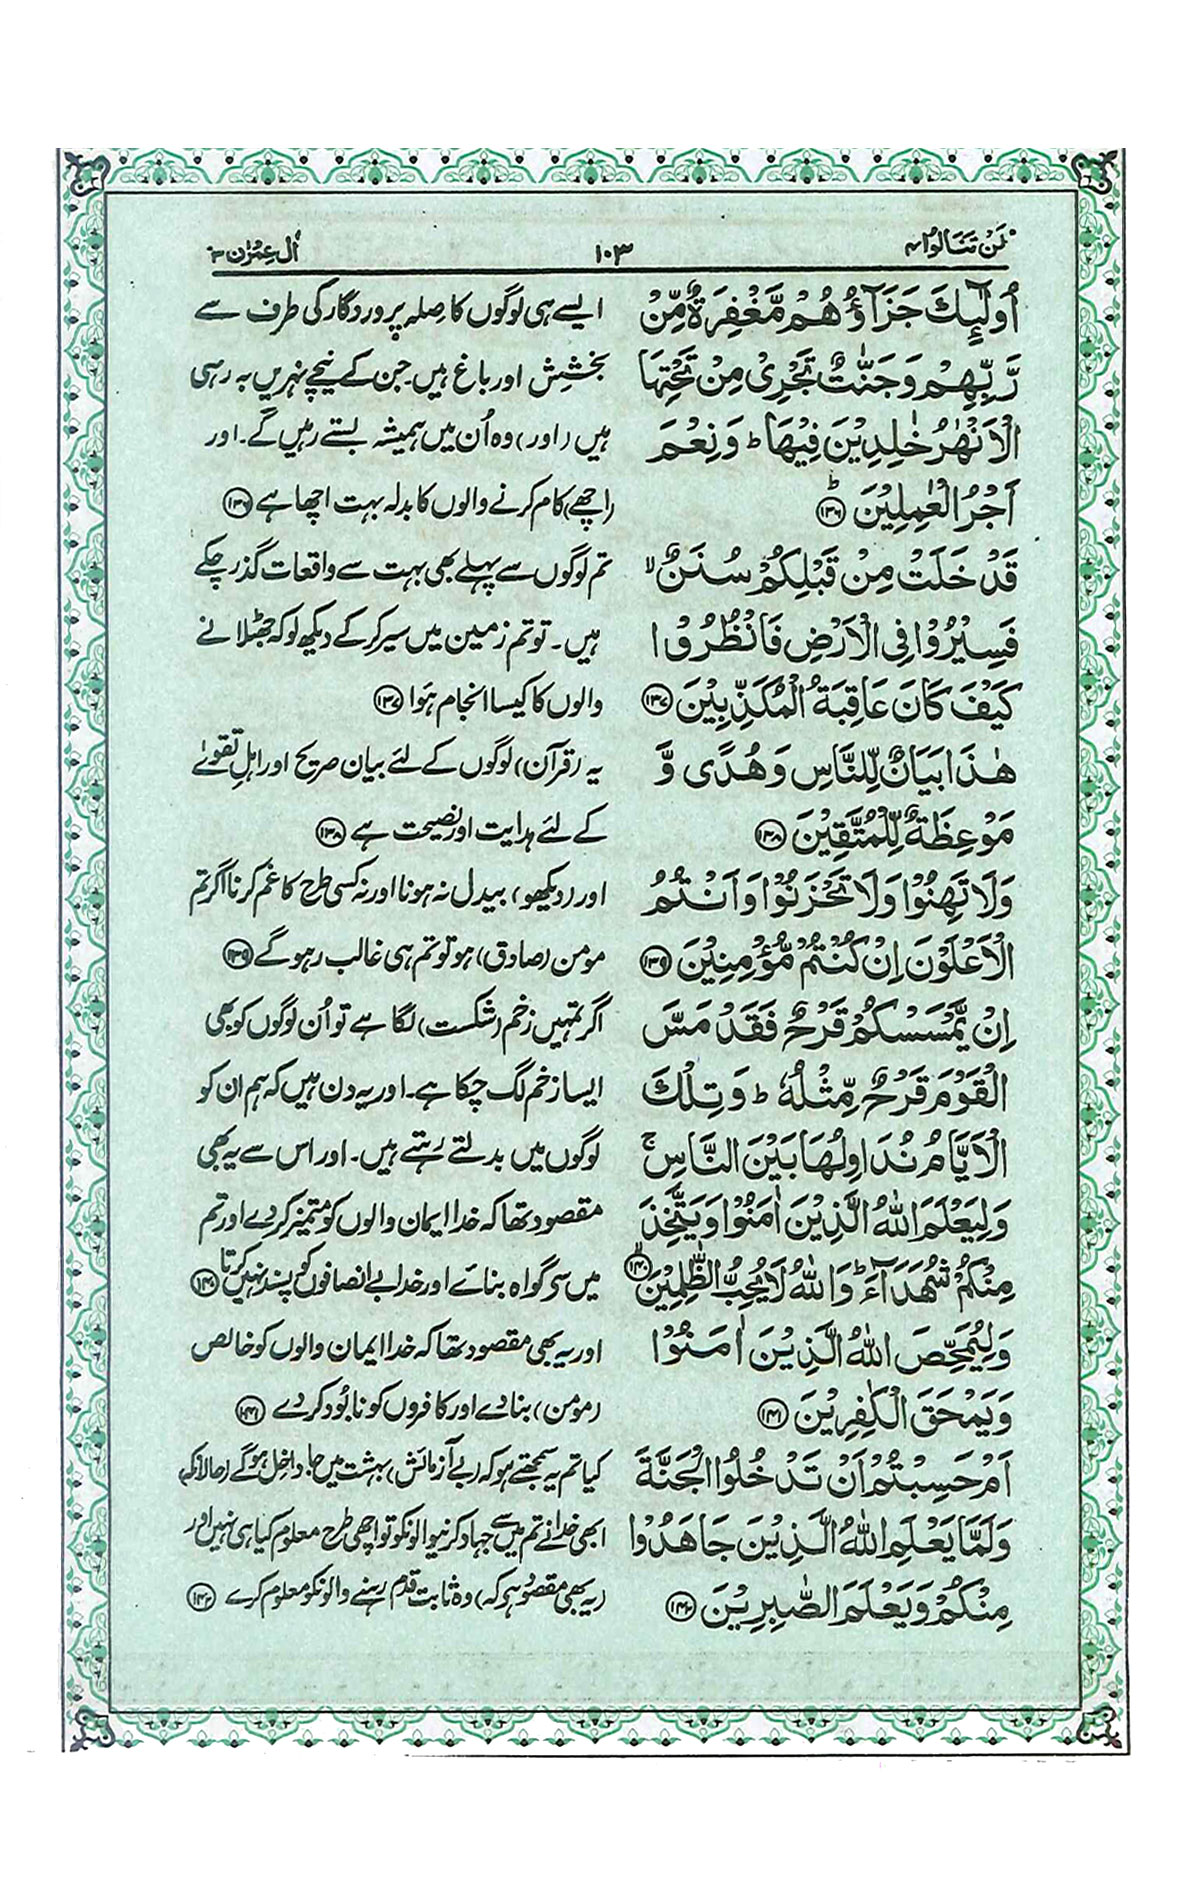 لَنْ تَنَالُوا ٤
١٠٣
اٰلِ عِمْرٰن ٣
اُولٰٓئِكَ جَزَآؤُهُمْ مَّغْفِرَةٌ مِّنْ
رَّبِّهِمْ وَجَنّٰتٌ تَجْرِیْ مِنْ تَحْتِهَا
الْاَنْهٰرُ خٰلِدِیْنَ فِیْهَا ؕ وَنِعْمَ
اَجْرُ الْعٰمِلِیْنَ ؕ ۱۳۶
قَدْ خَلَتْ مِنْ قَبْلِكُمْ سُنَنٌ ۙ
فَسِیْرُوْا فِی الْاَرْضِ فَانْظُرُوْا
كَیْفَ كَانَ عَاقِبَةُ الْمُكَذِّبِیْنَ ۱۳۷
هٰذَا بَیَانٌ لِّلنَّاسِ وَهُدًی وَّ
مَوْعِظَةٌ لِّلْمُتَّقِیْنَ ۱۳۸
وَلَا تَهِنُوْا وَلَا تَحْزَنُوْا وَاَنْتُمُ
الْاَعْلَوْنَ اِنْ كُنْتُمْ مُّؤْمِنِیْنَ ۱۳۹
اِنْ یَّمْسَسْكُمْ قَرْحٌ فَقَدْ مَسَّ
الْقَوْمَ قَرْحٌ مِّثْلُهٗ ؕ وَتِلْكَ
الْاَیَّامُ نُدَاوِلُهَا بَیْنَ النَّاسِ ۚ
وَلِیَعْلَمَ اللّٰهُ الَّذِیْنَ اٰمَنُوْا وَیَتَّخِذَ
مِنْكُمْ شُهَدَآءَ ؕ وَاللّٰهُ لَا یُحِبُّ الظّٰلِمِیْنَ ۙ ۱۴۰
وَلِیُمَحِّصَ اللّٰهُ الَّذِیْنَ اٰمَنُوْا
وَیَمْحَقَ الْكٰفِرِیْنَ ۱۴۱
اَمْ حَسِبْتُمْ اَنْ تَدْخُلُوا الْجَنَّةَ
وَلَمَّا یَعْلَمِ اللّٰهُ الَّذِیْنَ جَاهَدُوْا
مِنْكُمْ وَیَعْلَمَ الصّٰبِرِیْنَ ۱۴۲
ایسے ہی لوگوں کا صِلہ پروردگار کی طرف سے
بخشِش اور باغ ہیں۔ جن کے نیچے نہریں بہ رہی
ہیں (اور) وہ اُن میں ہمیشہ بستے رہیں گے۔ اور
(اچھے) کام کرنے والوں کا بدلہ بہت اچھا ہے ۱۳۶
تم لوگوں سے پہلے بھی بہت سے واقعات گذر چکے
ہیں۔ تو تم زمین میں سیر کر کے دیکھ لو کہ جھٹلانے
والوں کا کیسا انجام ہَوا ۱۳۷
یہ (قرآن) لوگوں کے لئے بیان صریح اور اہلِ تقوےٰ
کے لئے ہدایت اور نصیحت ہے ۱۳۸
اور (دیکھو) بیدل نہ ہونا اور نہ کسی طرح کا غم کرنا اگر تم
مومن (صادق) ہو تو تم ہی غالب رہو گے ۱۳۹
اگر تمہیں زخم (شکست) لگا ہے تو اُن لوگوں کو بھی
ایسا زخم لگ چکا ہے۔ اور یہ دن ہیں کہ ہم ان کو
لوگوں میں بدلتے رہتے ہیں۔ اور اس سے یہ بھی
مقصود تھا کہ خدا ایمان والوں کو متمیز کر دے اور تم
میں سے گواہ بنائے اور خدا بے انصافوں کو پسند نہیں کرتا ۱۴۰
اور یہ بھی مقصود تھا کہ خدا ایمان والوں کو خالص
(مومن) بنا دے اور کافروں کو نابُود کر دے ۱۴۱
کیا تم یہ سمجھتے ہو کہ (بے آزمائش) بہشت میں جا داخل ہو گے (حالانکہ)
ابھی خدا نے تم میں سے جہاد کرنیوالونکو تو اچھی طرح معلوم کیا ہی نہیں اور
(یہ بھی مقصُود ہے کہ) وہ ثابت قدم رہنے والونکو معلوم کرے ۱۴۲